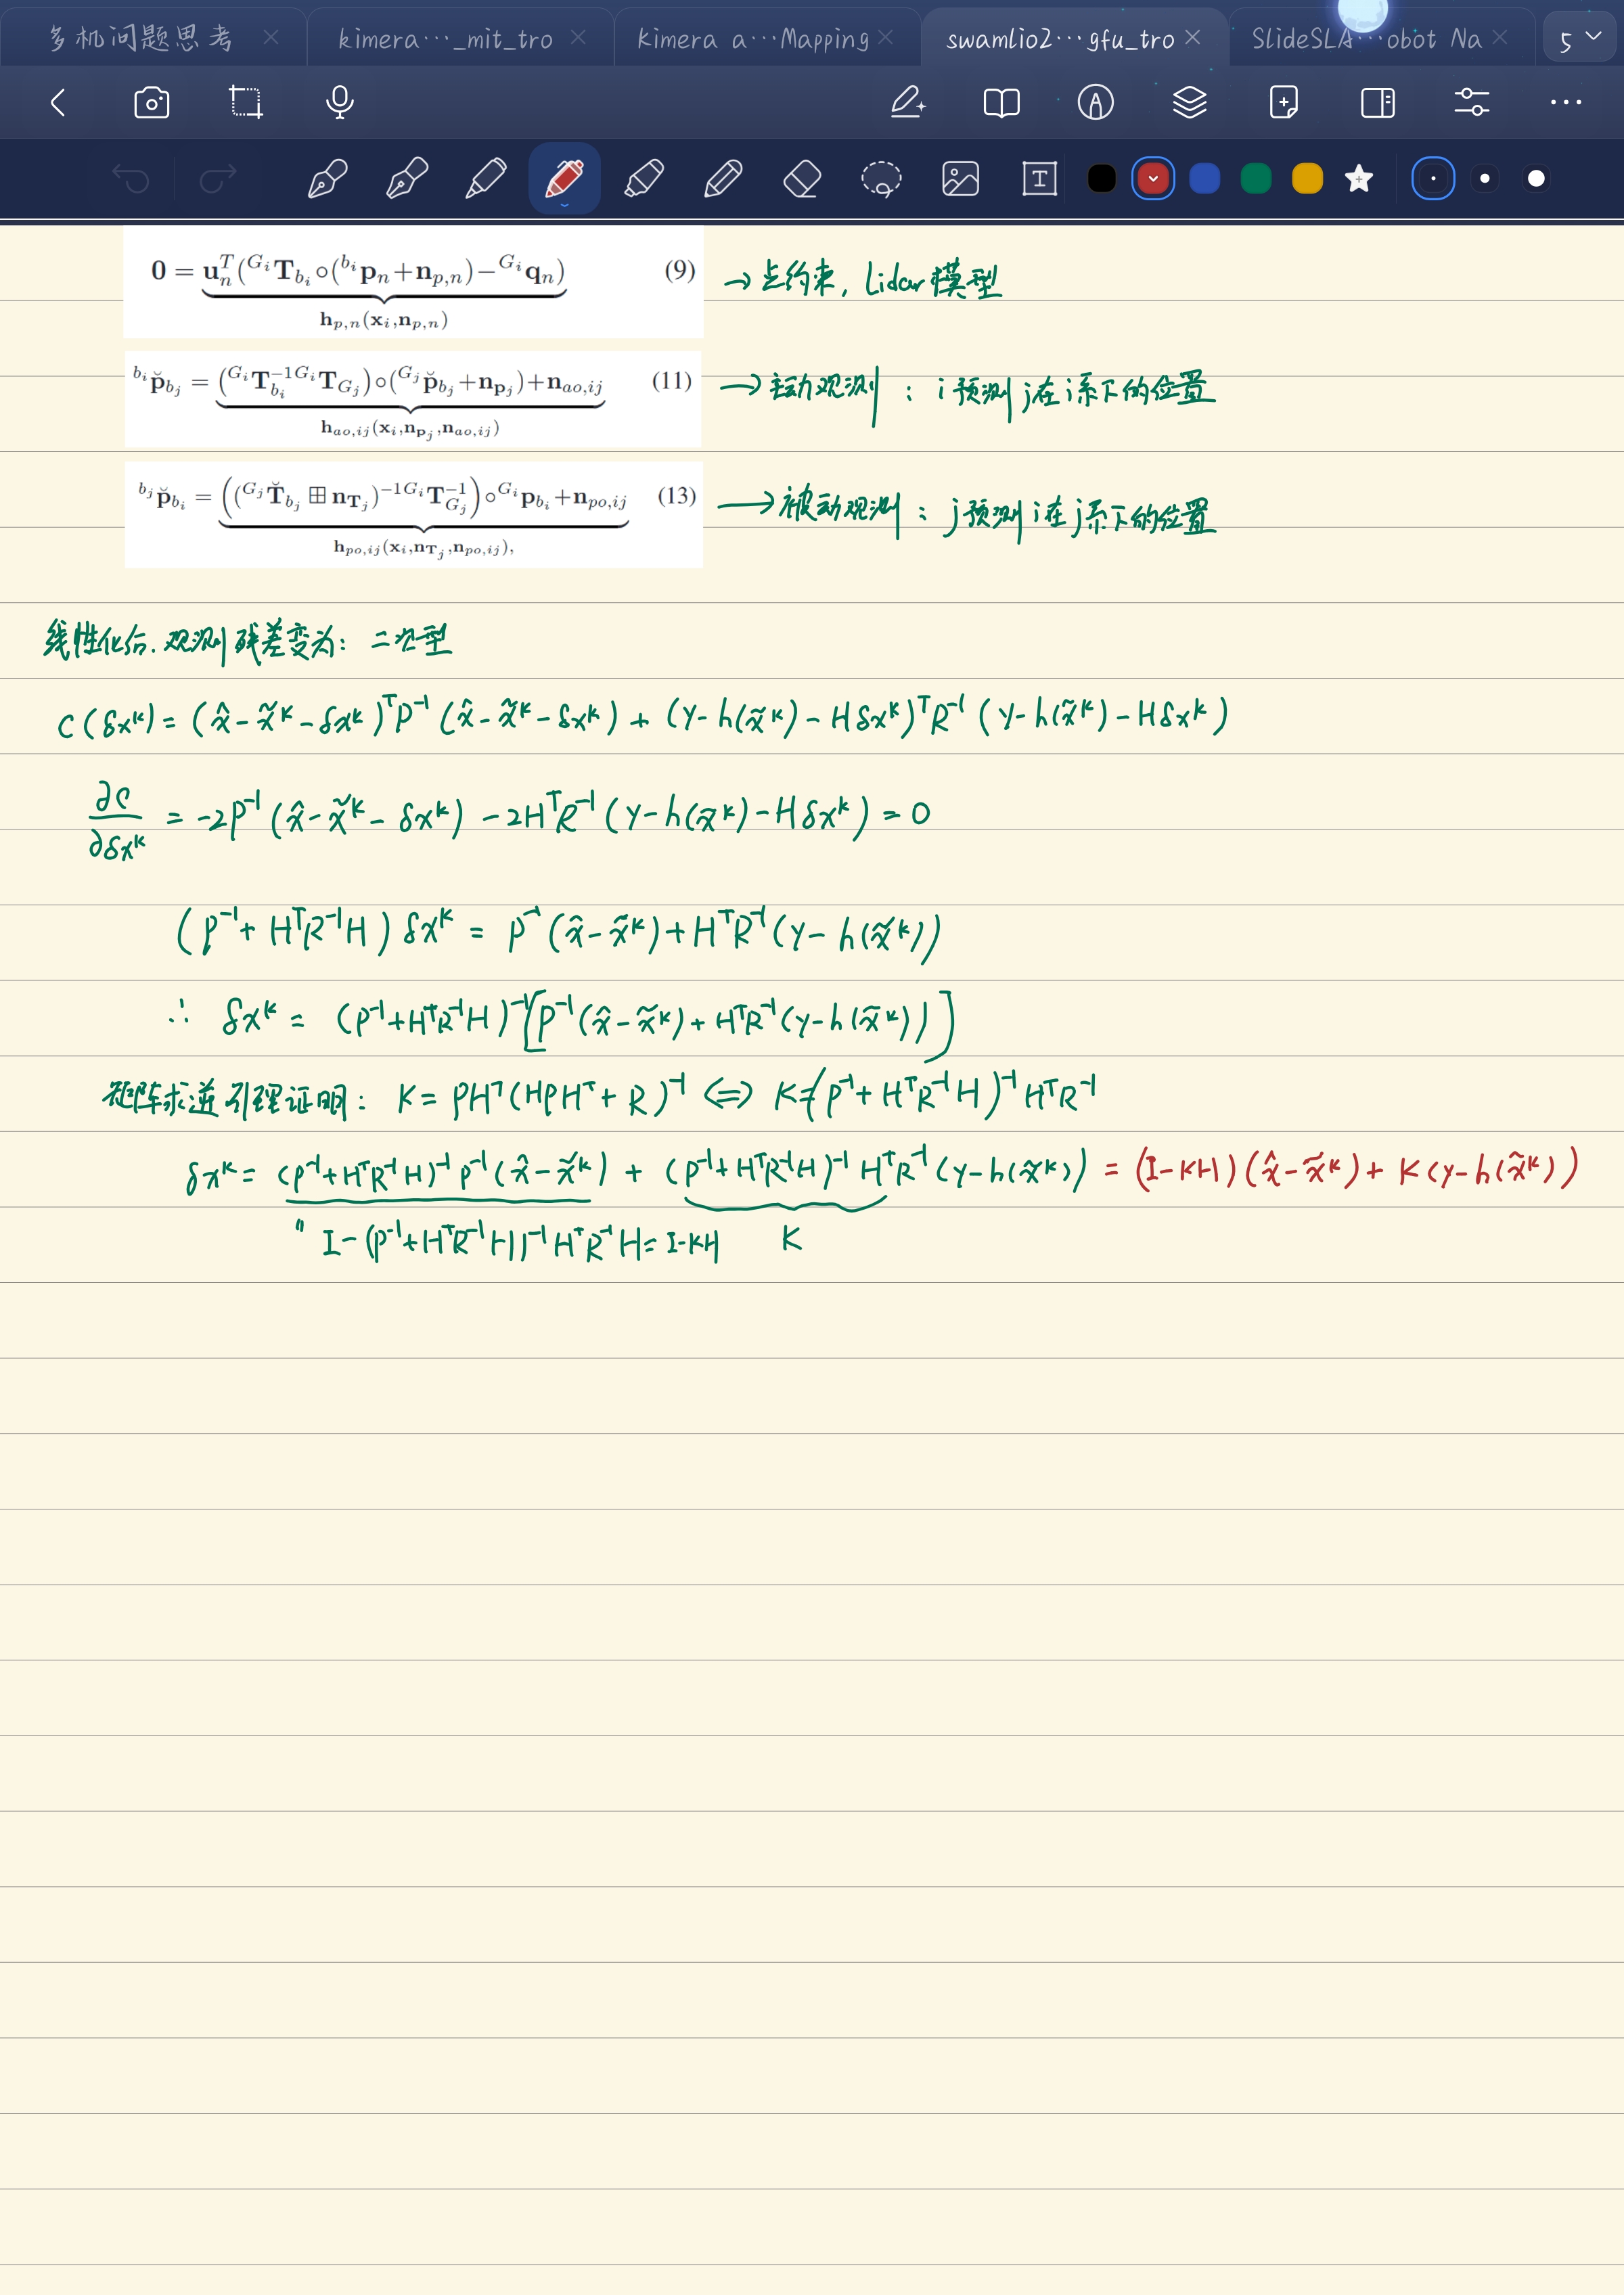 多机问题思考
kimera···_mit_tro
Kimera a···Mapping
swamlio2···gfu_tro
SlideSLA···obot Na
5
0 = u_n^T(^{G_i}T_{b_i}∘(^{b_i}p_n+n_{p,n})−^{G_i}q_n) (9) → 点约束, Lidar模型
h_{p,n}(x_i,n_{p,n})
^{b_i}p̆_{b_j} = (^{G_i}T_{b_i}^{-1}{}^{G_i}T_{G_j})∘(^{G_j}p̆_{b_j}+n_{p_j})+n_{ao,ij} (11) → 主动观测: i预测j在i系下的位置
h_{ao,ij}(x_i,n_{p_j},n_{ao,ij})
^{b_j}p̆_{b_i} = ((^{G_j}T̆_{b_j} ⊞ n_{T_j})^{-1}{}^{G_i}T_{G_j}^{-1})∘^{G_i}p_{b_i}+n_{po,ij} (13) → 被动观测: j预测i在j系下的位置
h_{po,ij}(x_i,n_{T_j},n_{po,ij}),
线性化后.观测残差变为: 二次型
C(δx^k) = (x̂-x̃^k-δx^k)^T P^{-1} (x̂-x̃^k-δx^k) + (y-h(x̃^k)-Hδx^k)^T R^{-1} (y-h(x̃^k)-Hδx^k)
∂C/∂δx^k = -2P^{-1}(x̂-x̃^k-δx^k) -2H^T R^{-1}(y-h(x̃^k)-Hδx^k) = 0
(P^{-1}+H^T R^{-1} H) δx^k = P^{-1}(x̂-x̃^k)+H^T R^{-1}(y-h(x̃^k))
∴ δx^k = (P^{-1}+H^T R^{-1} H)^{-1}[P^{-1}(x̂-x̃^k)+H^T R^{-1}(y-h(x̃^k))]
矩阵求逆引理证明: K = PH^T(HPH^T+R)^{-1} ⟺ K=(P^{-1}+H^T R^{-1} H)^{-1} H^T R^{-1}
δx^k = (P^{-1}+H^T R^{-1} H)^{-1} P^{-1}(x̂-x̃^k) + (P^{-1}+H^T R^{-1} H)^{-1} H^T R^{-1}(y-h(x̃^k)) = (I-KH)(x̂-x̃^k)+K(y-h(x̃^k))
" I-(P^{-1}+H^T R^{-1} H)^{-1} H^T R^{-1} H = I-KH K